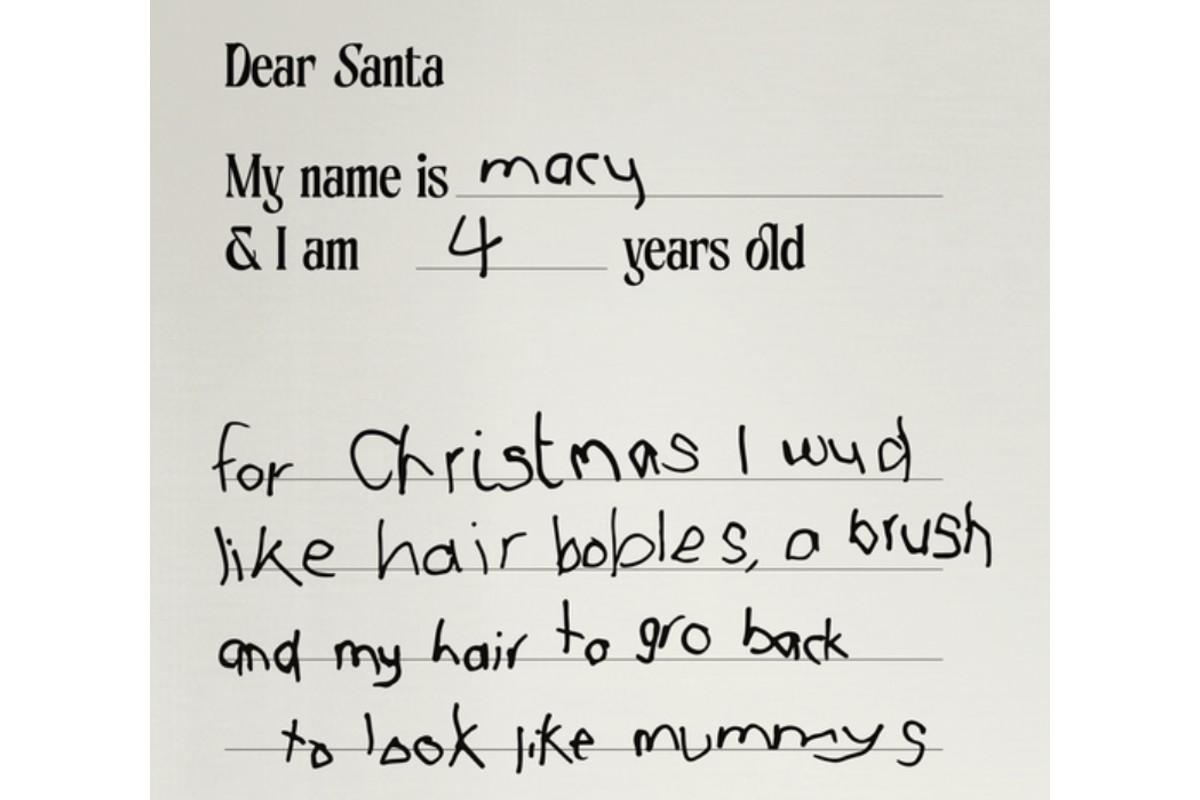 Dear Santa
My name is macy
& I am 4 years old
for Christmas I wud
like hair bobles, a brush
and my hair to gro back
to look like mummys